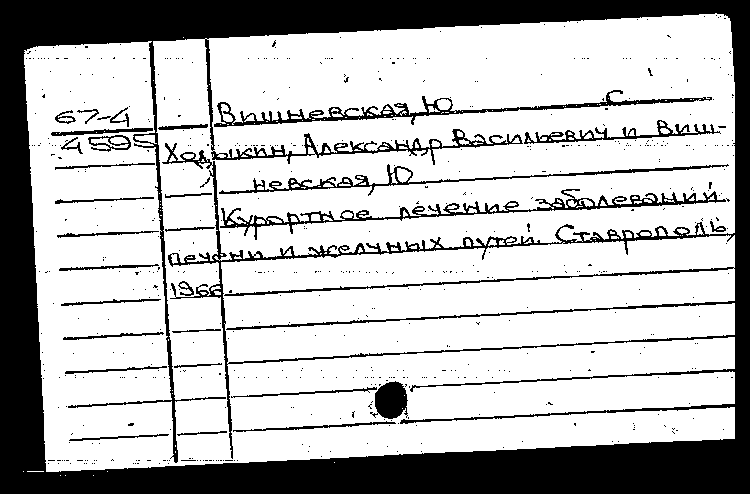 67-4 Вишневская, Ю С
4595 Ходыкин, Александр Васильевич и Виш-
невская, Ю
Курортное лечение заболеваний
печени и желчных путей. Ставрополь,
1966.